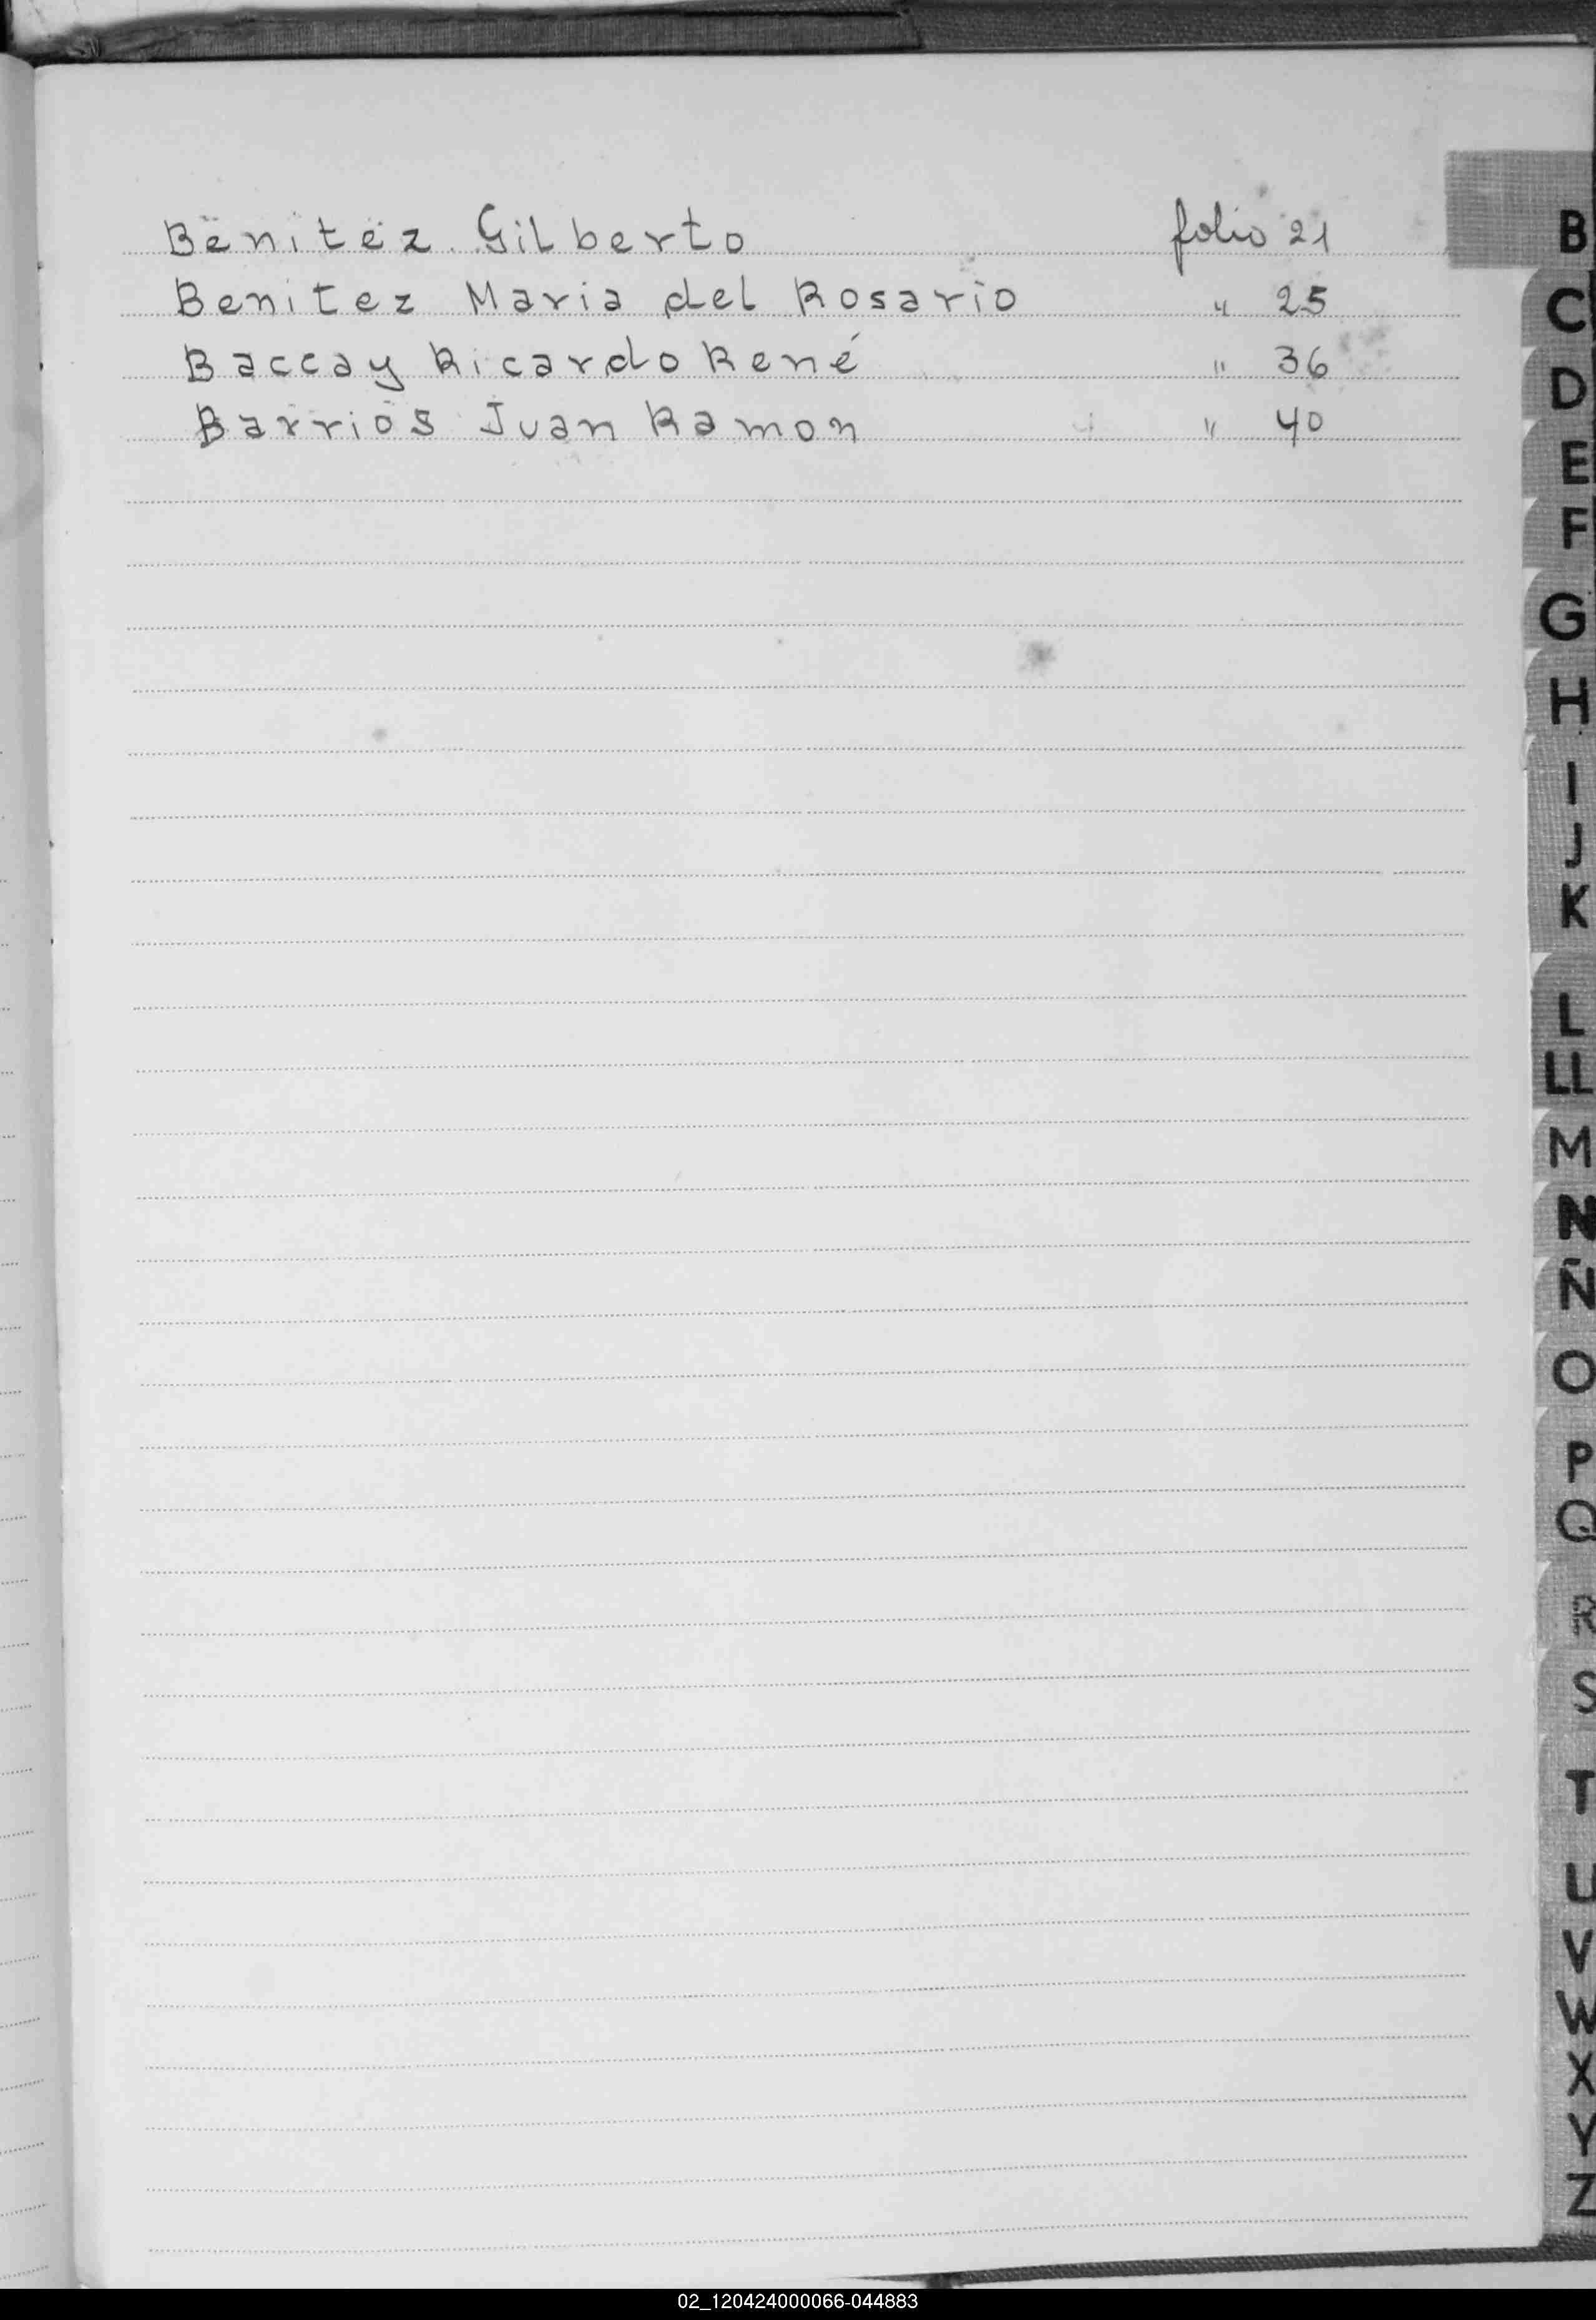 Benitez Gilberto folio 21
Benitez Maria del Rosario " 25
Baccay Ricardo René " 36
Barrios Juan Ramon " 40
B
C
D
E
F
G
H
I
J
K
L
LL
M
N
Ñ
O
P
Q
R
S
T
U
V
W
X
Y
Z
02_120424000066-044883